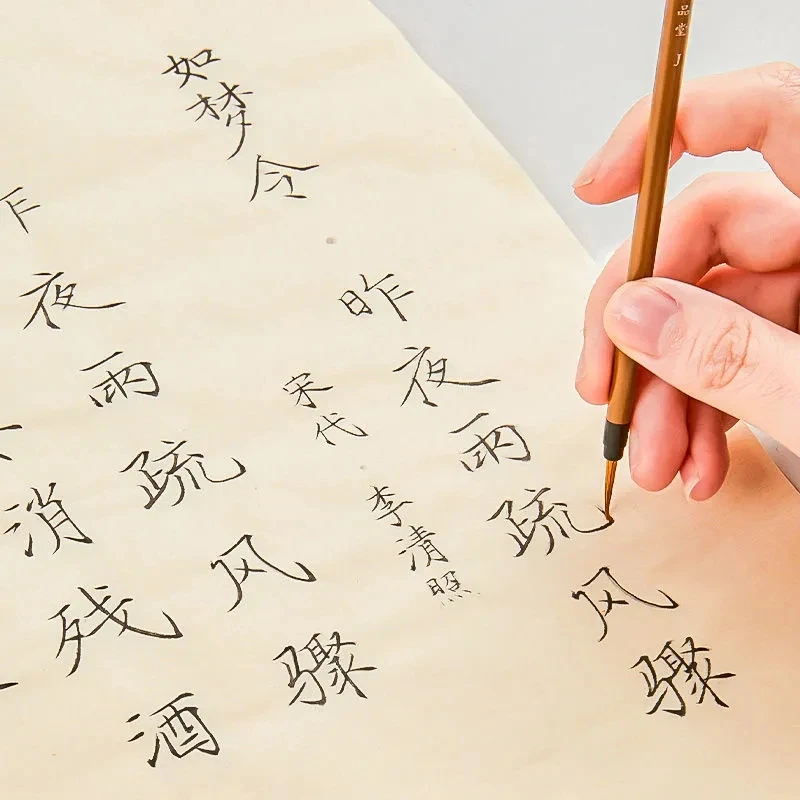 昨夜雨疏风骤
如梦令
宋代
李清照
夜雨疏风骤
消残酒
品堂 J